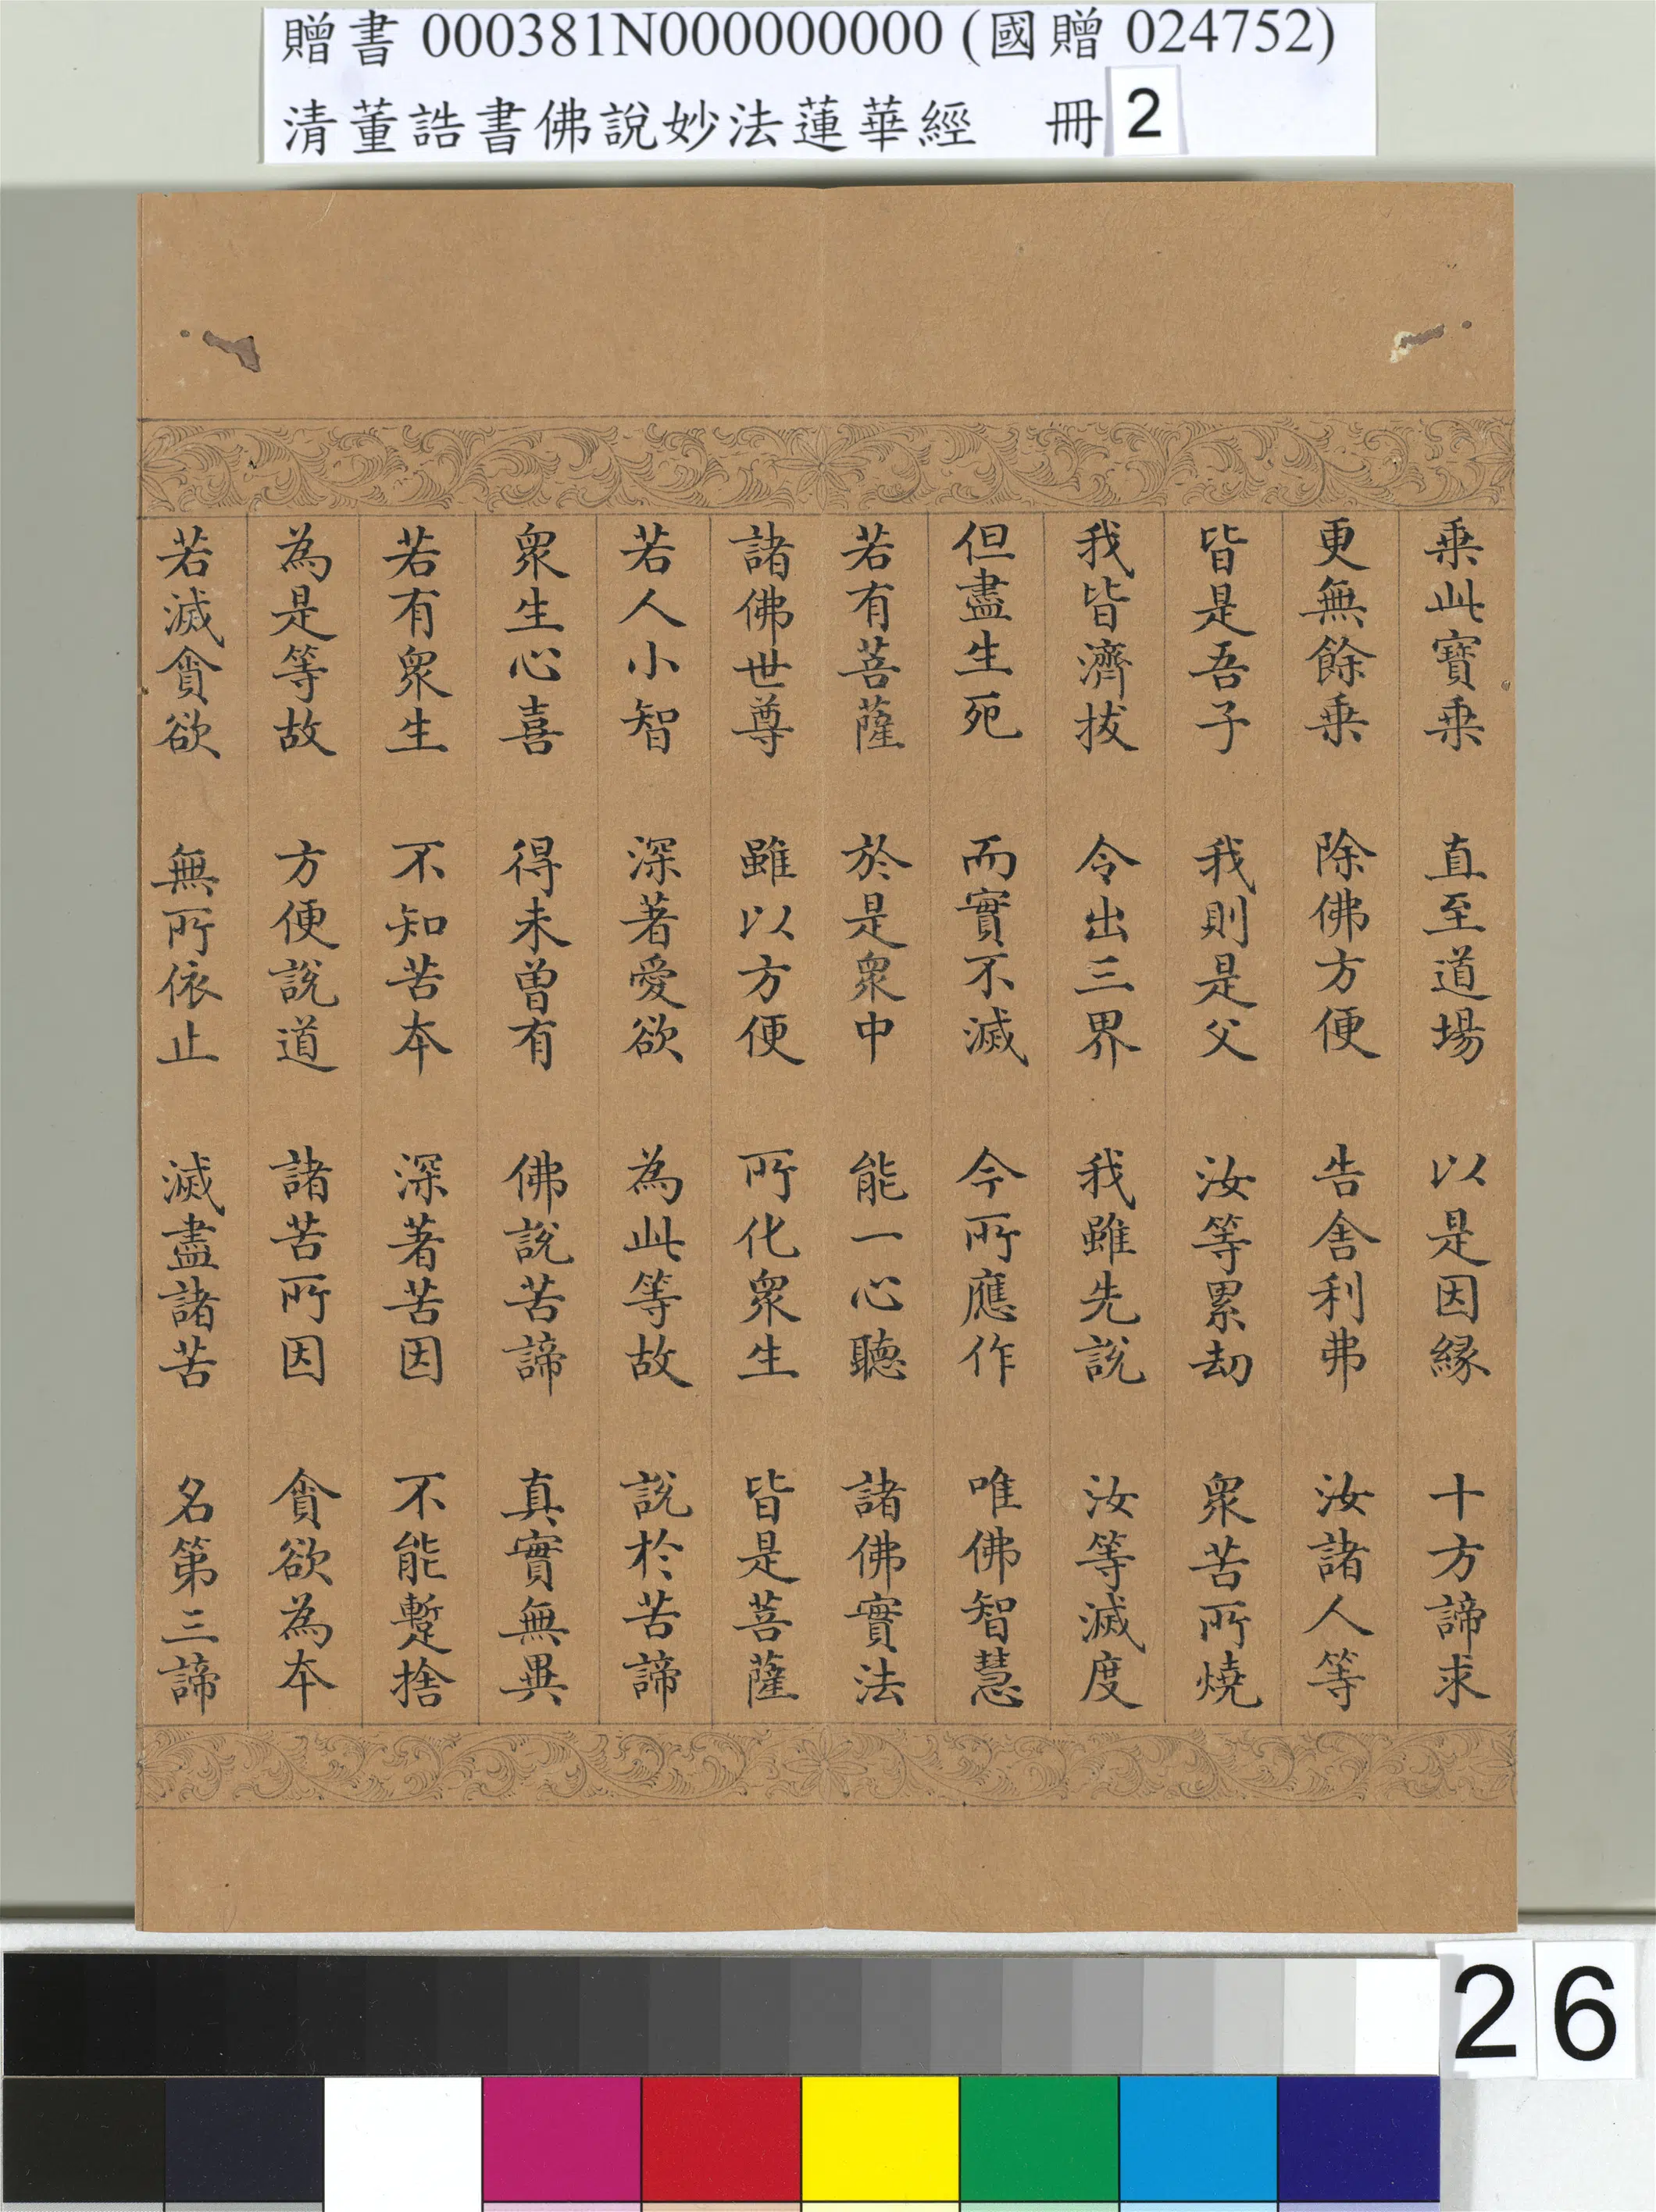 贈書 000381N000000000 (國贈 024752)
清董誥書佛說妙法蓮華經 冊 2
乗此寶乗 直至道場 以是因縁 十方諦求
更無餘乗 除佛方便 告舎利弗 汝諸人等
皆是吾子 我則是父 汝等累劫 衆苦所燒
我皆濟拔 令出三界 我雖先說 汝等滅度
但盡生死 而實不滅 今所應作 唯佛智慧
若有菩薩 於是衆中 能一心聽 諸佛實法
諸佛世尊 雖以方便 所化衆生 皆是菩薩
若人小智 深著愛欲 為此等故 說於苦諦
衆生心喜 得未曾有 佛說苦諦 真實無異
若有衆生 不知苦本 深著苦因 不能暫捨
為是等故 方便說道 諸苦所因 貪欲為本
若滅貪欲 無所依止 滅盡諸苦 名第三諦
26